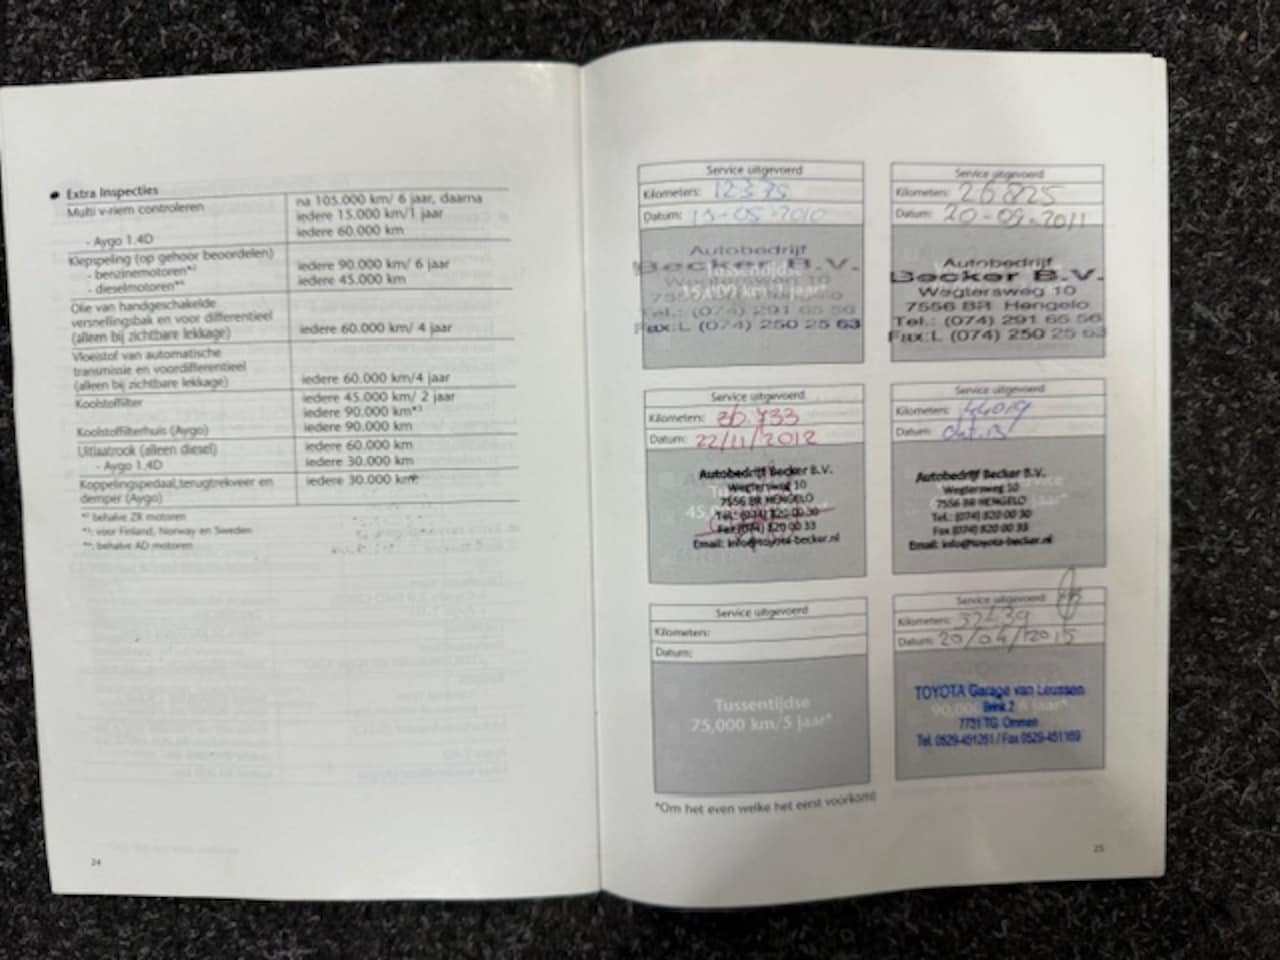 Extra Inspecties
Multi v-riem controleren
na 105.000 km/ 6 jaar, daarna
iedere 15.000 km/1 jaar
- Aygo 1.4D
iedere 60.000 km
Klepspeling (op gehoor beoordelen)
- benzinemotoren*²
iedere 90.000 km/ 6 jaar
- dieselmotoren*⁴
iedere 45.000 km
Olie van handgeschakelde
versnellingsbak en voor differentieel
(alleen bij zichtbare lekkage)
iedere 60.000 km/ 4 jaar
Vloeistof van automatische
transmissie en voordifferentieel
(alleen bij zichtbare lekkage)
iedere 60.000 km/4 jaar
Koolstoffilter
iedere 45.000 km/ 2 jaar
iedere 90.000 km*³
Koolstoffilterhuis (Aygo)
iedere 90.000 km
Uitlaatrook (alleen diesel)
iedere 60.000 km
- Aygo 1.4D
iedere 30.000 km
Koppelingspedaal,terugtrekveer en
demper (Aygo)
iedere 30.000 km
*² behalve ZR motoren
*³: voor Finland, Norway en Sweden
*⁴: behalve AD motoren
24
Service uitgevoerd
Kilometers: 12375
Datum: -05-2010
Autobedrijf
Becker B.V.
Tussentijdse
15,000 km/1 jaar*
Tel.: (074) 291 65 56
Fax:L (074) 250 25 63
Service uitgevoerd
Kilometers: 26825
Datum: 20-09-2011
Autobedrijf
Becker B.V.
Wegtersweg 10
7556 BR Hengelo
Tel.: (074) 291 65 56
Fax:L (074) 250 25 63
Service uitgevoerd
Kilometers:
Datum: 22/11/2012
Autobedrijf Becker B.V.
Wegtersweg 10
7556 BR HENGELO
Tel.: (074) 820 00 30
Fax (074) 820 00 33
Email: info@toyota-becker.nl
Service uitgevoerd
Kilometers: 44019
Datum:
Autobedrijf Becker B.V.
Wegtersweg 10
7556 BR HENGELO
Tel.: (074) 820 00 30
Fax (074) 820 00 33
Email: info@toyota-becker.nl
Service uitgevoerd
Kilometers:
Datum:
Tussentijdse
75,000 km/5 jaar*
Service uitgevoerd
Kilometers:
Datum: 20/04/2015
TOYOTA Garage van Leussen
Brink 2
7731 TG Ommen
Tel. 0529-451251 / Fax 0529-451169
*Om het even welke het eerst voorkomt
25